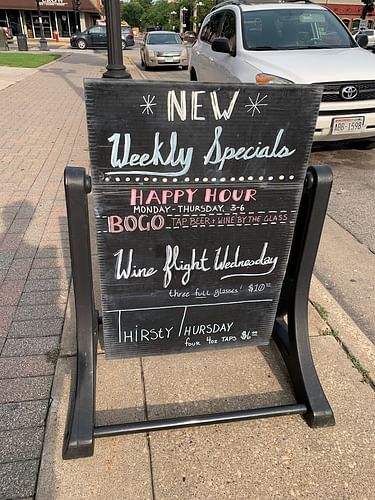 * NEW *
Weekly Specials
HAPPY HOUR
MONDAY-THURSDAY 3-6
BOGO TAP BEER + WINE BY THE GLASS
Wine flight Wednesday
three full glasses! $10⁰⁰
THIRSTY THURSDAY
four 4oz TAPS $6⁰⁰
TOYOTA